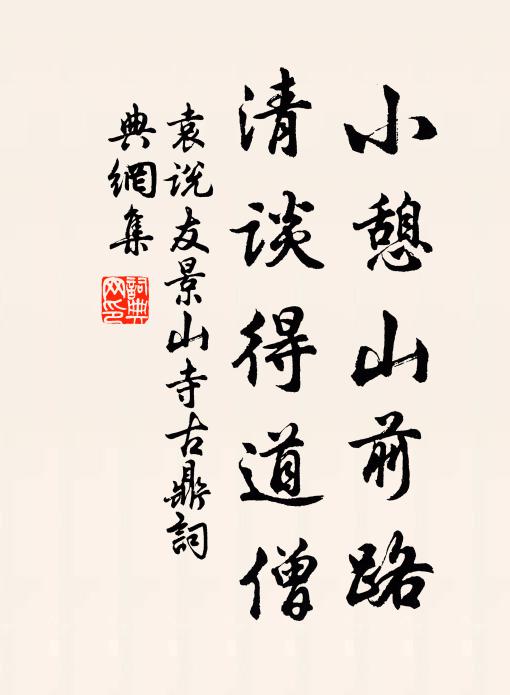 小憩山前路
清談得道僧
袁説友景山寺古鼎詞
典網集
詞典網印